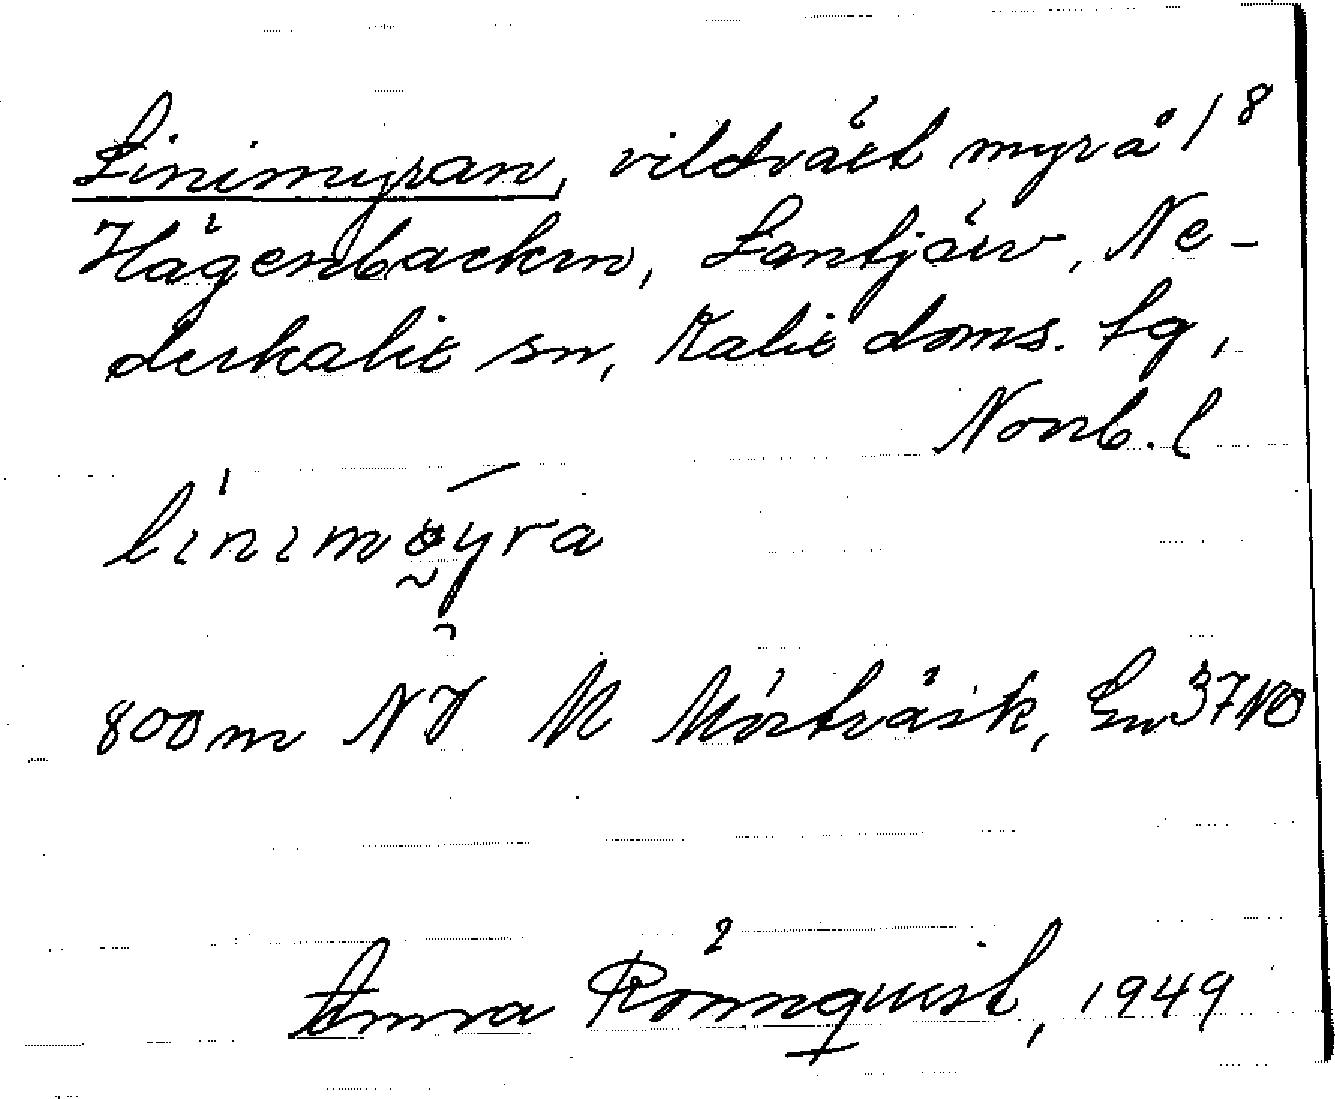 Linimyran, vildväxt myrå / 8
Hågenbäcken, Lantjärv, Ne-
derkalix sn, Kalix doms. tg,
Norrb. l
línimøyra
800m NV N Mörtträsk, En 37 NO
Anna Rönnquist, 1949